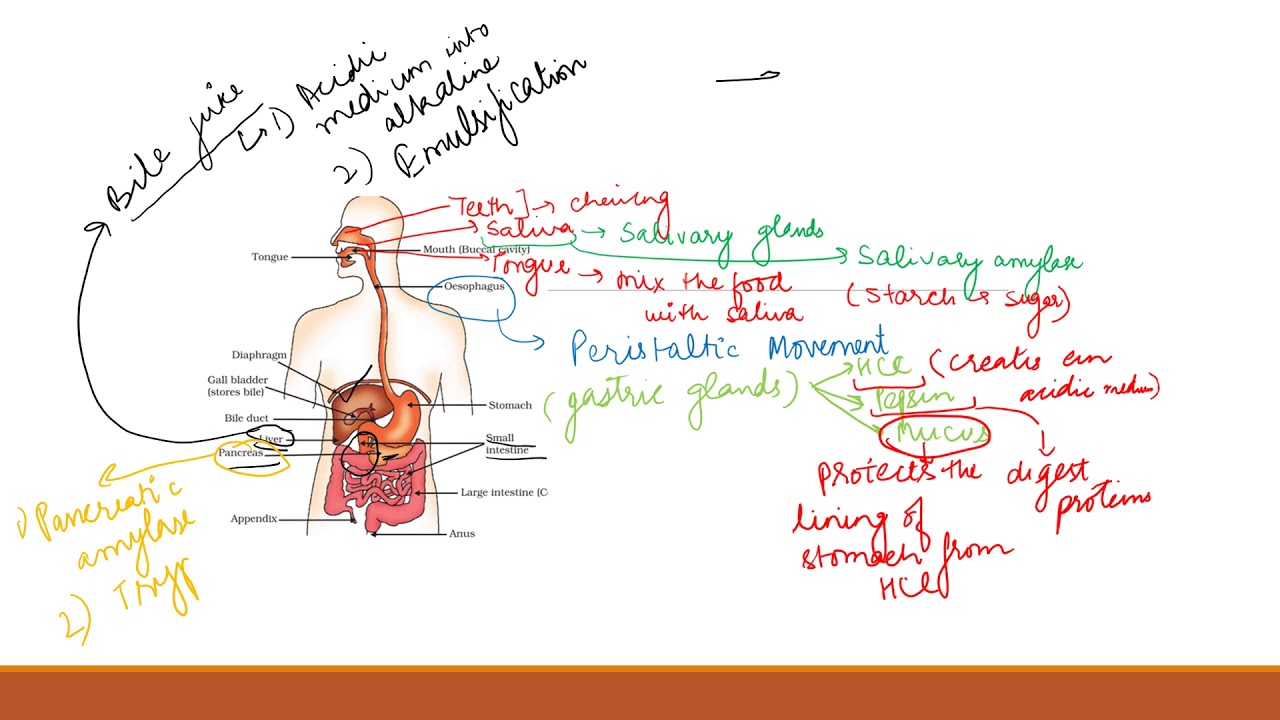 Bile juice
↳ 1) Acidic
medium into
alkaline
2) Emulsification
Teeth] → chewing
Saliva → Salivary glands
Salivary amylase
(starch → sugar)
Mouth (Buccal cavity)
Tongue
Tongue → mix the food
with saliva
Oesophagus
Peristaltic Movement
Diaphragm
Gall bladder
(stores bile)
Bile duct
Liver
Pancreas
Appendix
Stomach
Small
intestine
Large intestine (C
Anus
(gastric glands)
HCl (creates an
acidic medium)
Pepsin
Mucus
protects the
lining of
stomach from
HCl
digest
proteins
1) Pancreatic
amylase
2) Tryp